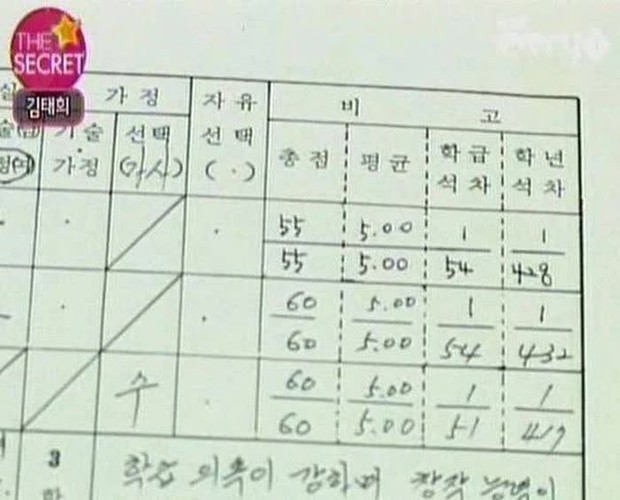 THE
SECRET
김태희
가 정 자 유 비 고
기 술 선택 선 택 총 점 평 균 학 급 학 년
가 정 (가사) ( · ) 석 차 석 차
55 5.00 1 1
55 5.00 54 428
60 5.00 1 1
60 5.00 54 432
수 60 5.00 1 1
60 5.00 51 417
3 학습 의욕이 강하며 창작 능력이
학